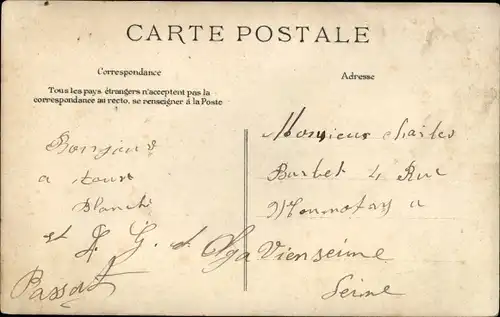 CARTE POSTALE
Correspondance
Adresse
Tous les pays étrangers n'acceptent pas la
correspondance au recto, se renseigner à la Poste
Bonjour
a tous
Blanche
et A. G. et Olga
Monsieur Charles
Barbet 4 Rue
a
Seine